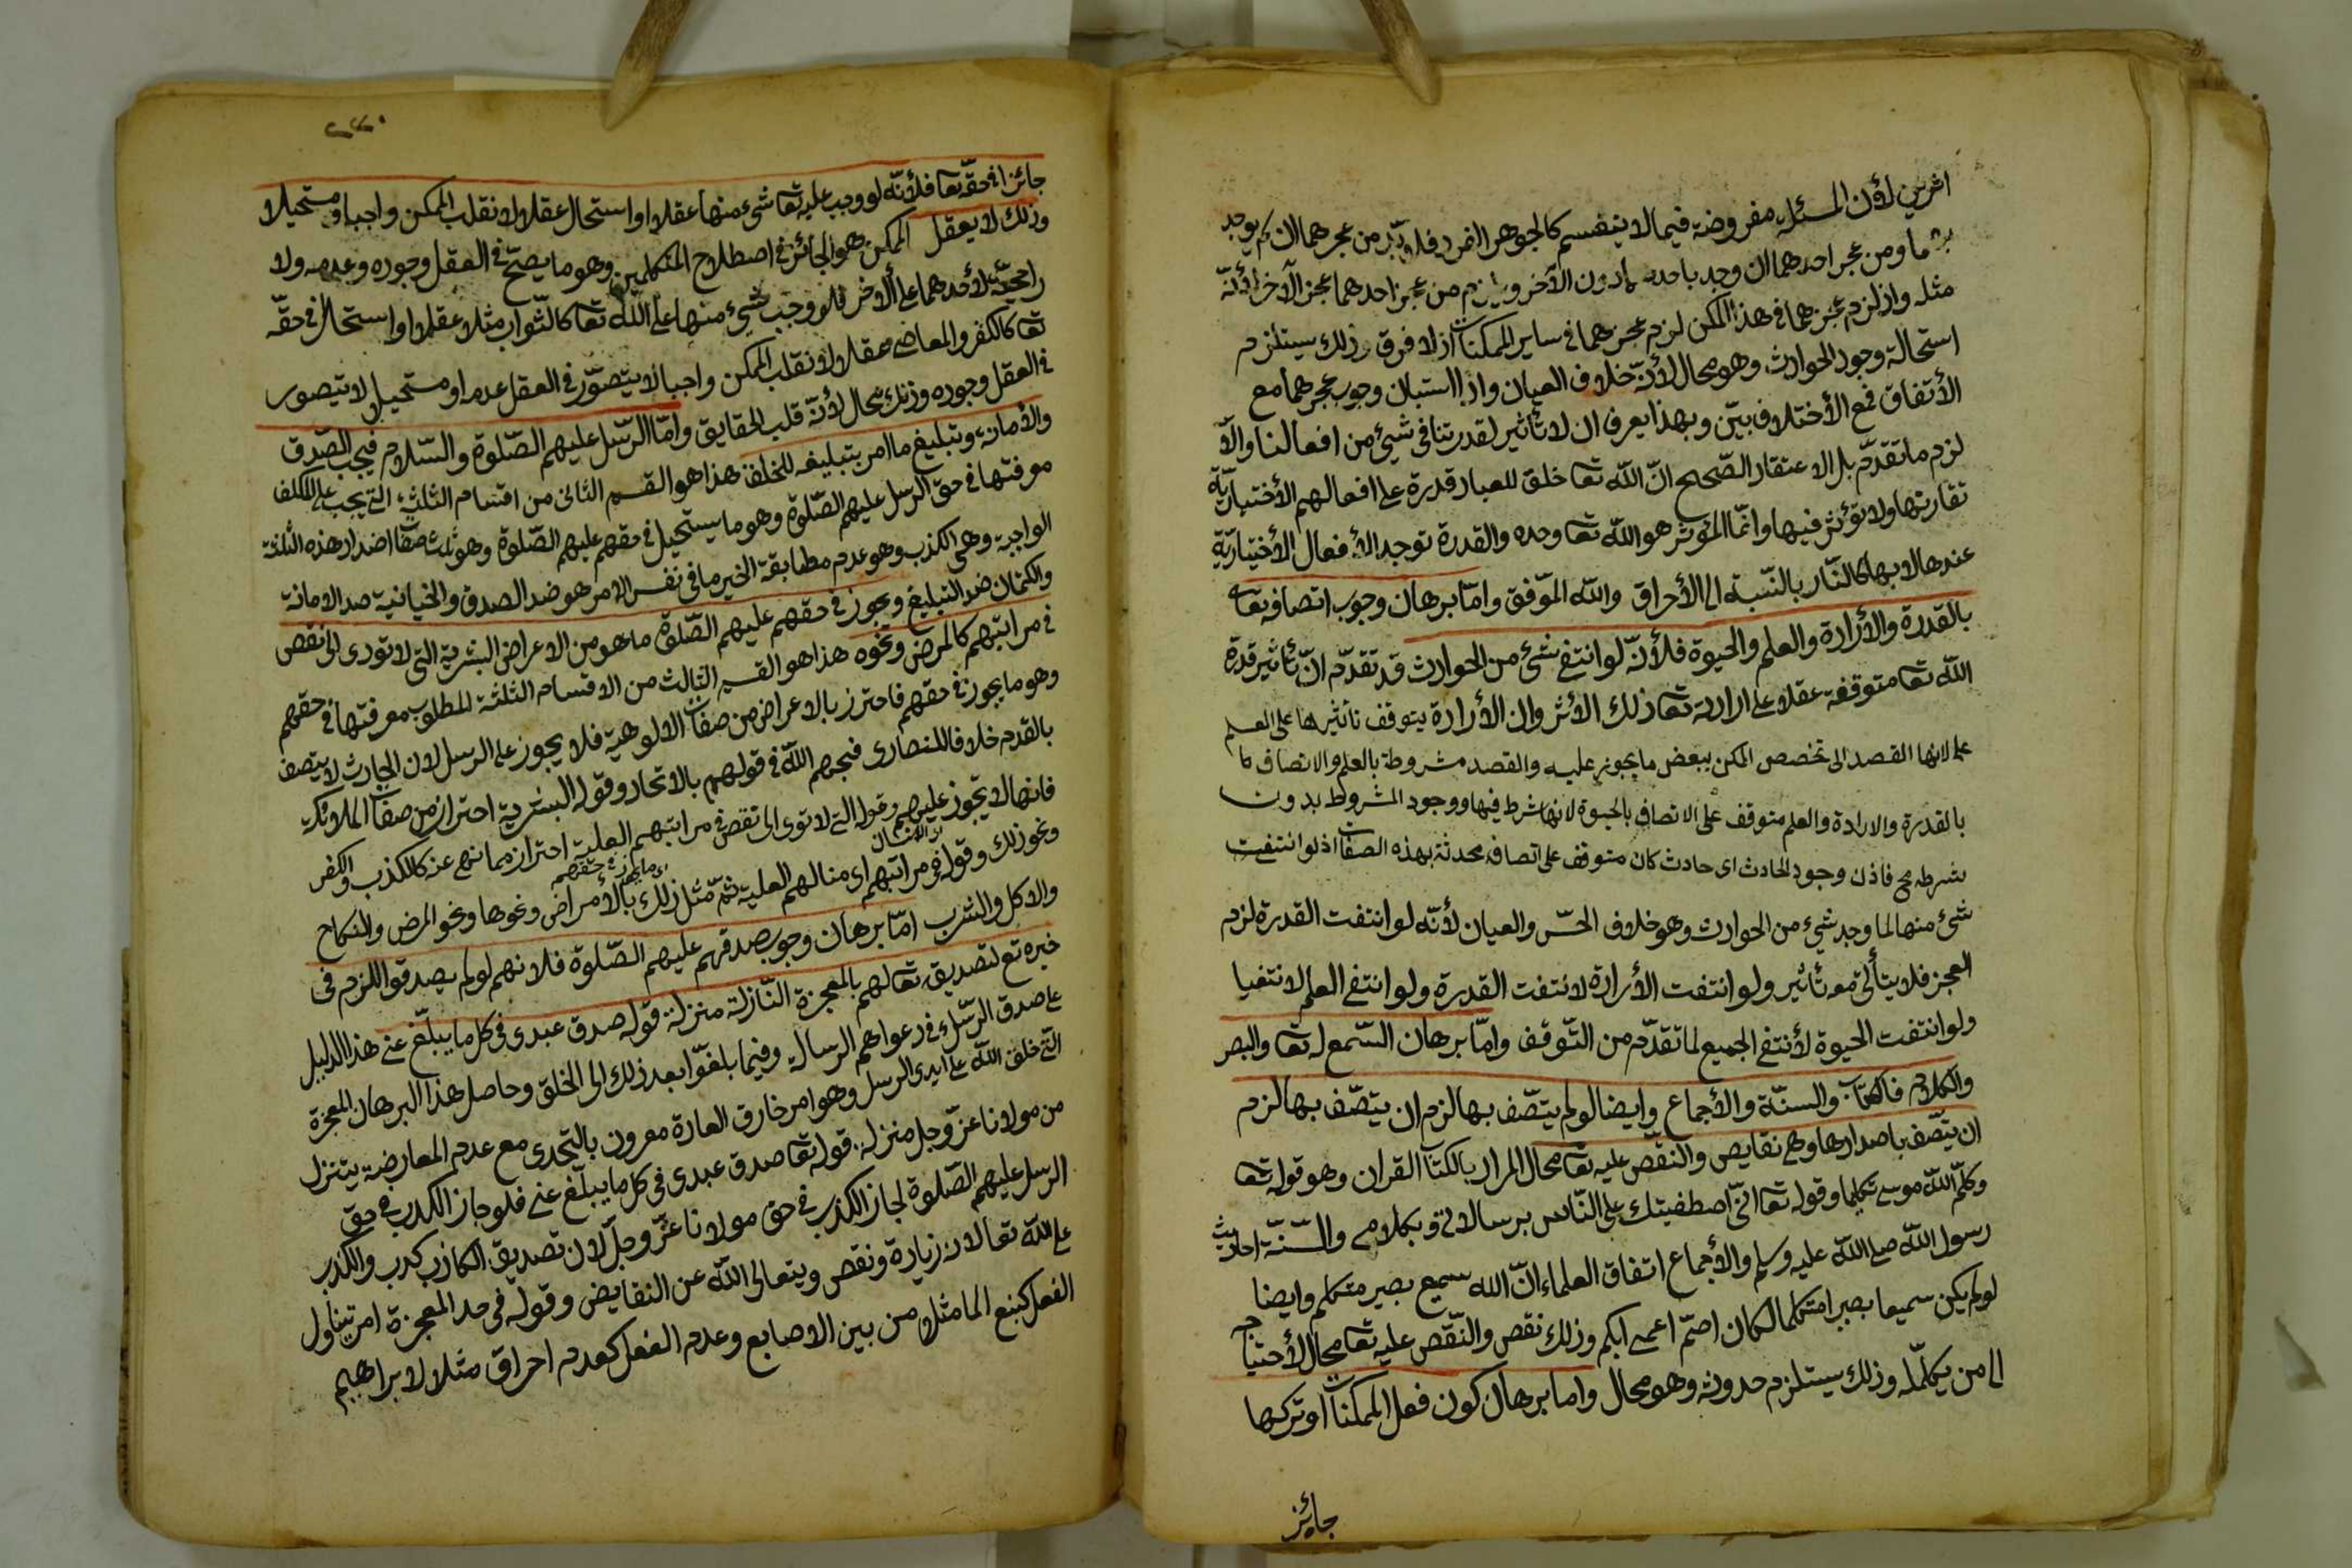 اثرين لأن المسئلة مفروضة فيما لا ينقسم كالجوهر الفرد فلا بد من عجزهما ان لم يوجد
بهما ومن عجز احدهما ان وجد باحدهما دون الآخر ويلزم من عجز احدهما عجز الآخر لأنه
مثله واذ لزم عجزهما في هذا الممكن لزم عجزهما في ساير الممكنات اذ لا فرق وذلك يستلزم
استحالة وجود الحوادث وهو محال لأنه خلاف العيان واذا استبان وجوب عجزهما مع
الأتفاق فمع الأختلاف بين وبهذا يعرف ان لا تأثير لقدرتنا في شيء من افعالنا والا
لزم ما تقدم بل الاعتقاد الصحيح ان الله تعا خلق للعباد قدرة على افعالهم الأختيارية
تقارنها ولا تؤثر فيها وانما المؤثر هو الله تعا وحده والقدرة توجد الأفعال الأختيارية
عندها لا بها كالنار بالنسبة الى الأحراق والله الموفق واما برهان وجوب اتصافه تعا
بالقدرة والأرادة والعلم والحيوة فلأنه لو انتفى شيء من الحوادث قد تقدم ان تأثير قدرة
الله تعا متوقفة عقلا على ارادته تعا ذلك الأثر وان الأرادة يتوقف تأثيرها على العلم
على لانها القصد الى تخصص الممكن ببعض ما يجوز عليه والقصد مشروطة بالعلم والاتصاف
بالقدرة والارادة والعلم متوقف على الاتصاف بالحيوة لانها شرط فيها ووجود المشروط بدون
شرطه مح فاذن وجود الحادث اى حادث كان متوقف على اتصاف محدثه بهذه الصفات اذ لو انتفت
شئ منها لما وجد شيء من الحوادث وهو خلاف الحس والعيان لأنه لو انتفت القدرة لزم
العجز فلا يتأتى معه تأثير ولو انتفت الأرادة لانتفت القدرة ولو انتفى العلم لانتفيا
ولو انتفت الحيوة لأنتفى الجميع لما تقدم من التوقف واما برهان السمع له تعا والبصر
والكلام فالكتاب والسنة والأجماع وايضا لو لم يتصف بها لزم ان يتصف بها لزم
ان يتصف باضدادها وهي نقايص والنقص عليه تعا محال المراد بالكتاب القران وهو قوله تعا
وكلم الله موسى تكليما وقوله تعا انى اصطفيتك على الناس برسالاتى وبكلامي والسنة احاديث
رسول الله صلى الله عليه وسلم والأجماع اتفاق العلماء ان الله سميع بصير متكلم وايضا
لو لم يكن سميعا بصيرا متكلما لكان اصم اعمى ابكم وذلك نقص والنقص عليه تعا محال لأحتياجه
الى من يكمله وذلك يستلزم حدوثه وهو محال واما برهان كون فعل الممكنات او تركها
جايز
جائزا في حقه تعا فلأنه لو وجب عليه تعا شيء منها عقلا او استحال عقلا لانقلب الممكن واجبا او مستحيلا
وذلك لا يعقل الممكن هو الجائز في اصطلاح المتكلمين وهو ما يصح في العقل وجوده وعدمه ولا
راجحية لأحدهما على الآخر فلو وجب شيء منها على الله تعا كالثواب مثلا عقلا او استحال في حقه
تعا كالكفر والمعاصي عقلا لانقلب الممكن واجبا لا يتصور في العقل عدمه او مستحيل لا يتصور
في العقل وجوده وذلك محال لأنه قلب الحقايق واما الرسل عليهم الصلوة والسلام فيجب الصدق
والأمانة وتبليغ ما امر بتبليغه للخلق هذا هو القسم الثانى من اقسام الثلثة التى يجب على المكلف
معرفتها في حق الرسل عليهم الصلوة وهو ما يستحيل في حقهم عليهم الصلوة وهو ثلث صفات اضداد هذه الثلثة
الواجبة وهي الكذب وهو عدم مطابقة الخبر ما في نفس الامر هو ضد الصدق والخيانية ضد الامانة
والكتمان ضد التبليغ ويجوز في حقهم عليهم الصلوة ما هو من الاعراض البشرية التى لا تؤدى الى نقص
في مراتبهم كالمرض ونحوه هذا هو القسم الثالث من الاقسام الثلثة المطلوب معرفتها في حقهم
وهو ما يجوز في حقهم فاحترز بالاعراض من صفات الالوهية فلا يجوز على الرسل لان الحادث لا يتصف
بالقدم خلافا للنصارى فبحهم الله في قولهم بالاتحاد وقوله البشرية احتراز من صفات الملائكة
فانها لا تجوز عليهم وقوله التى لا تؤدى الى نقص في مراتبهم العلية احتراز مما نهي عنه كالكذب والكفر
ونحو ذلك وقوله في مراتبهم اى منالهم العلية ثم مثل ذلك بالأمراض ونحوها ونحو المرض والنكاح
والاكل والشرب اما برهان وجوب صدقهم عليهم الصلوة فلانهم لو لم يصدقوا للزم في
خبره تع لتصديقه تعا لهم بالمعجزة النازلة منزلة قوله صدق عبدى في كل ما يبلغ عنى هذا الدليل
على صدق الرسل في دعواهم الرسالة وفيما بلغوا بعد ذلك الى الخلق وحاصل هذا البرهان المعجزة
التى خلق الله على ايدى الرسل وهو امر خارق العادة مقرون بالتحدى مع عدم المعارضة يتنزل
من مولانا عز وجل منزلة قوله تعا صدق عبدى في كل ما يبلغ عنى فلو جاز الكذب في حق
الرسل عليهم الصلوة لجاز الكذب في حق مولانا عز وجل لان تصديق الكاذب كذب والكذب
على الله تعالى لان زيادة ونقص ويتعالى الله عن النقايض وقوله في حد المعجزة امر يتناول
الفعل كنبع الما مثلا من بين الاصابع وعدم الفعل كعدم احراق مثلا لابراهيم